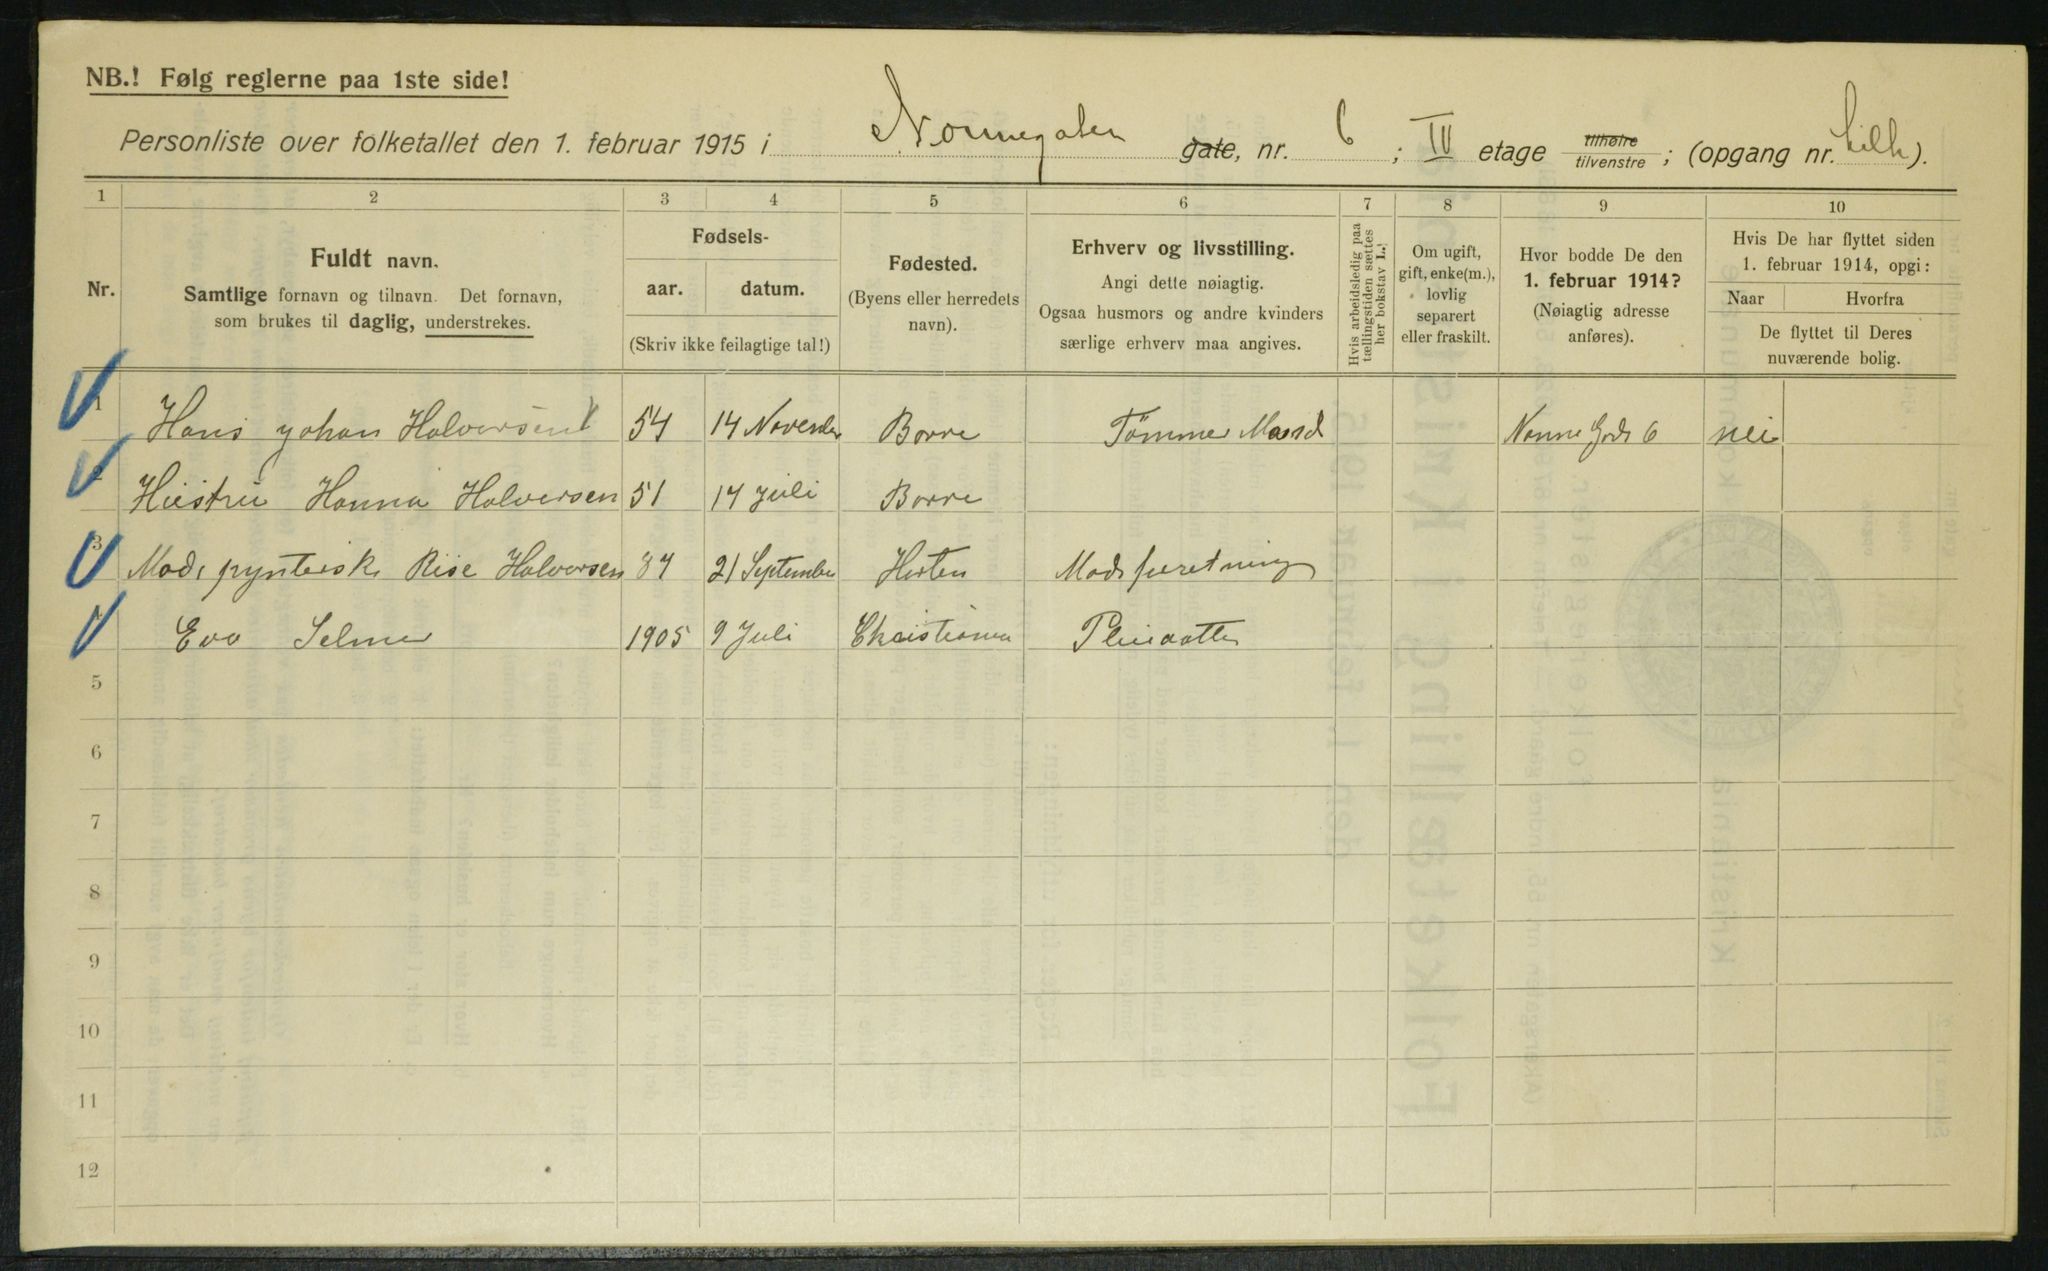 NB.! Følg reglerne paa 1ste side!
Personliste over folketallet den 1. februar 1915 i Nonnegaten gate, nr. 6; IV etage tilhøire tilvenstre; (opgang nr. ).
1 2 3 4 5 6 7 8 9 10
Nr.
Fuldt navn.
Samtlige fornavn og tilnavn. Det fornavn,
som brukes til daglig, understrekes.
Fødsels-
aar. datum.
(Skriv ikke feilagtige tal!)
Fødested.
(Byens eller herredets
navn).
Erhverv og livsstilling.
Angi dette nøiagtig.
Ogsaa husmors og andre kvinders
særlige erhverv maa angives.
Hvis arbeidsledig paa
tællingstiden sættes
her bokstav L.!
Om ugift,
gift, enke(m.),
lovlig
separert
eller fraskilt.
Hvor bodde De den
1. februar 1914?
(Nøiagtig adresse
anføres).
Hvis De har flyttet siden
1. februar 1914, opgi:
Naar Hvorfra
De flyttet til Deres
nuværende bolig.
1 Hans Johan Halversen 54 14 November Borre Tømmer Mand Nonne Gade 6 nei
2 Hustru Hanna Halversen 51 14 Juli Borre
3 Mode pynterske Halversen 21 September Horten Modeforretning
4 Eva Selmer 1905 9 Juli Christiania Pleiedatter
5
6
7
8
9
10
11
12